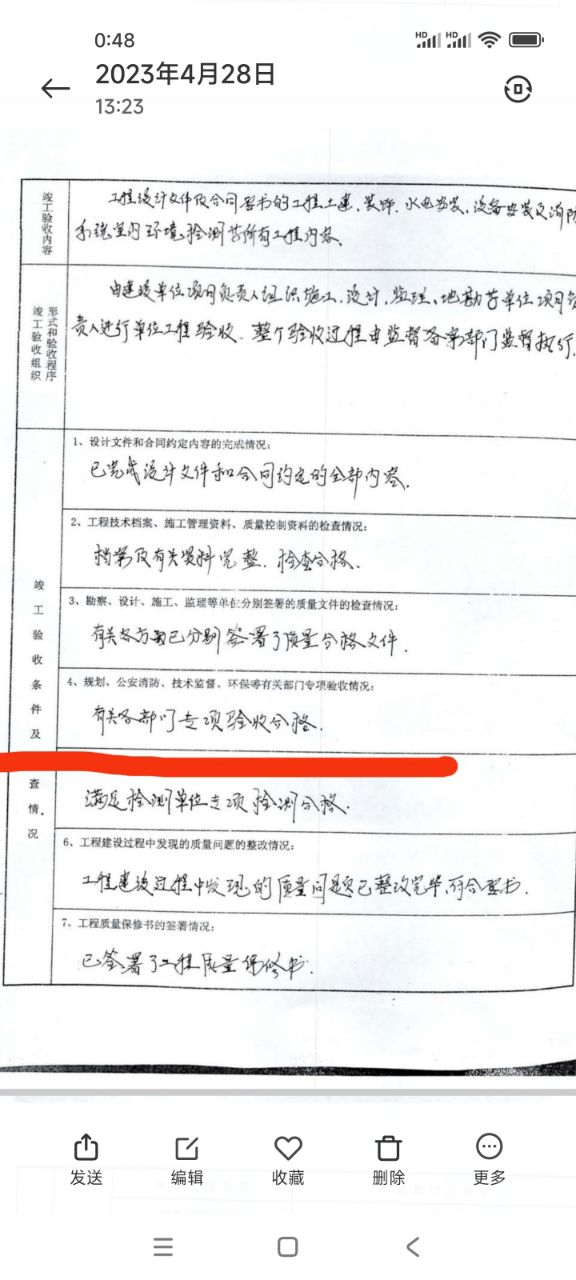 0:48
HD HD
2023年4月28日
13:23
竣工验收内容
工程设计文件及合同要书的工程土建、装饰、水电安装、设备安装及消防
系统室内环境检测等所有工程内容。
竣工验收组织形式和验收程序
由建设单位项目负责人组织施工、设计、监理、地勘等单位项目负
责人进行单位工程验收、整个验收过程由监督备案部门监督执行.
竣工验收条件及查情况
1、设计文件和合同约定内容的完成情况:
已完成设计文件和合同约定的全部内容.
2、工程技术档案、施工管理资料、质量控制资料的检查情况:
档案及有关资料完整.检查合格.
3、勘察、设计、施工、监理等单位分别签署的质量文件的检查情况:
有关各方面已分别签署了质量合格文件.
4、规划、公安消防、技术监督、环保等有关部门专项验收情况:
有关各部门专项验收合格.
满足检测单位专项检测合格.
6、工程建设过程中发现的质量问题的整改情况:
工程建设过程中发现的质量问题已整改完毕,符合要书.
7、工程质量保修书的签署情况:
已签署了工程质量保修书.
发送 编辑 收藏 删除 更多